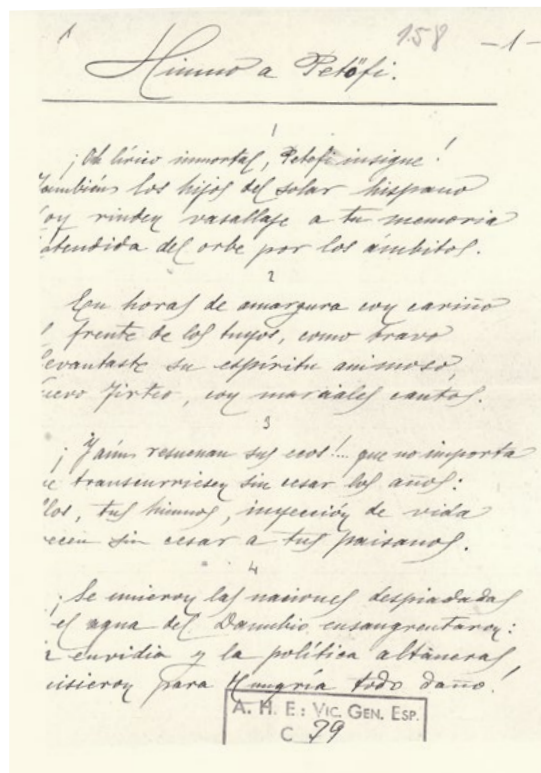 158 -1-
Himno a Petőfi.
1
¡Oh lírico inmortal, Petőfi insigne!
También los hijos del solar hispano
oy rinden vasallaje a tu memoria
xtendida del orbe por los ambitos.
2
En horas de amargura con cariño
l frente de los tuyos, como bravo
evantaste su espíritu animoso,
uevo Tirteo, con marciales cantos.
3
¡Y aún resuenan sus ecos!... que no importa
ue transcurriesen sin cesar los años:
llos, tus himnos, inyección de vida
recen sin cesar a tus paisanos.
4
¡Se unieron las naciones despiadadas
el agua del Danubio ensangrentaron:
a envidia y la política altaneras
uisieron para Hungría todo daño!
A. H. E: VIC. GEN. ESP.
C 79